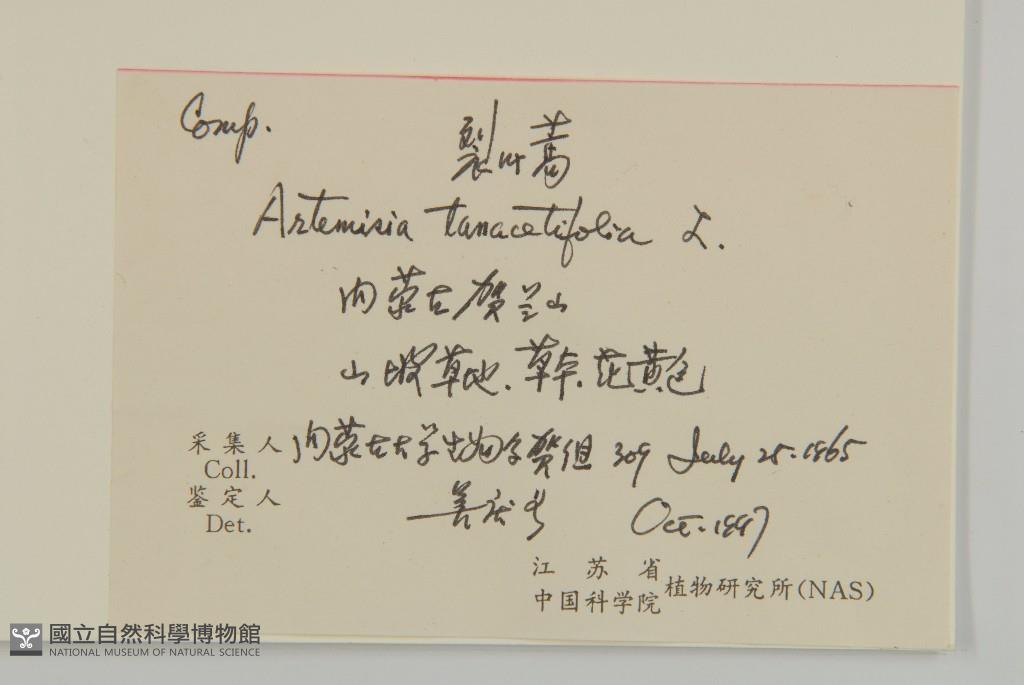 Comp.
裂叶蒿
Artemisia tanacetifolia L.
内蒙古贺兰山
山坡草地、草本、花黄色
采集人 内蒙古大学生物系贺组 309 July 25. 1965
Coll.
鉴定人
Det. Oct. 1997
江苏省
中国科学院 植物研究所(NAS)
國立自然科學博物館
NATIONAL MUSEUM OF NATURAL SCIENCE